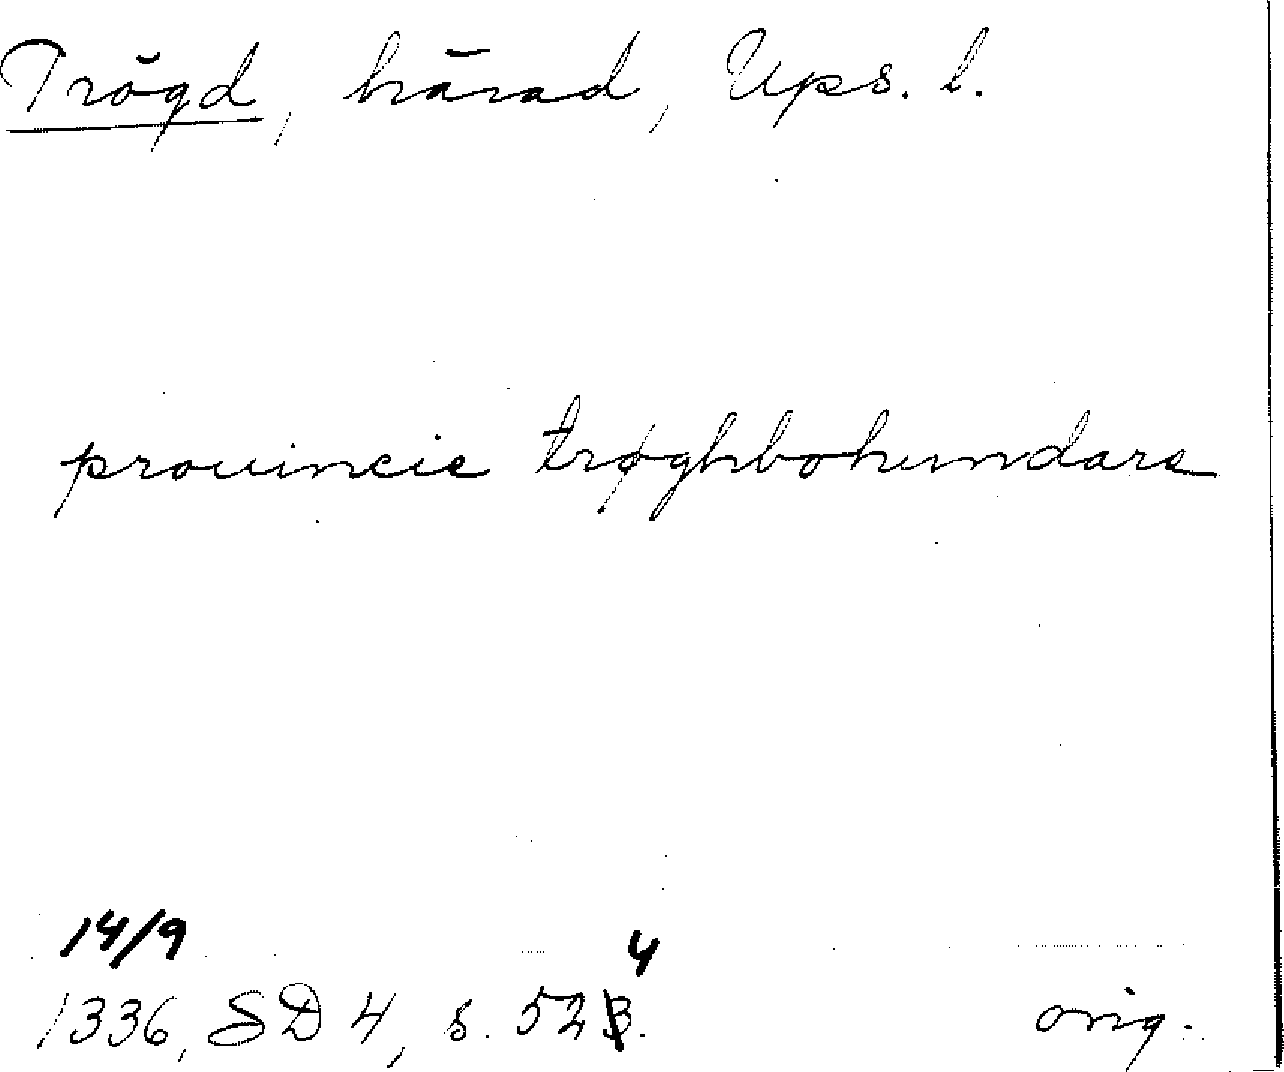 Trögd, härad, Ups. l.
prouincie trøghbohundare
14/9
4
1336, SD 4, s. 523.
orig.